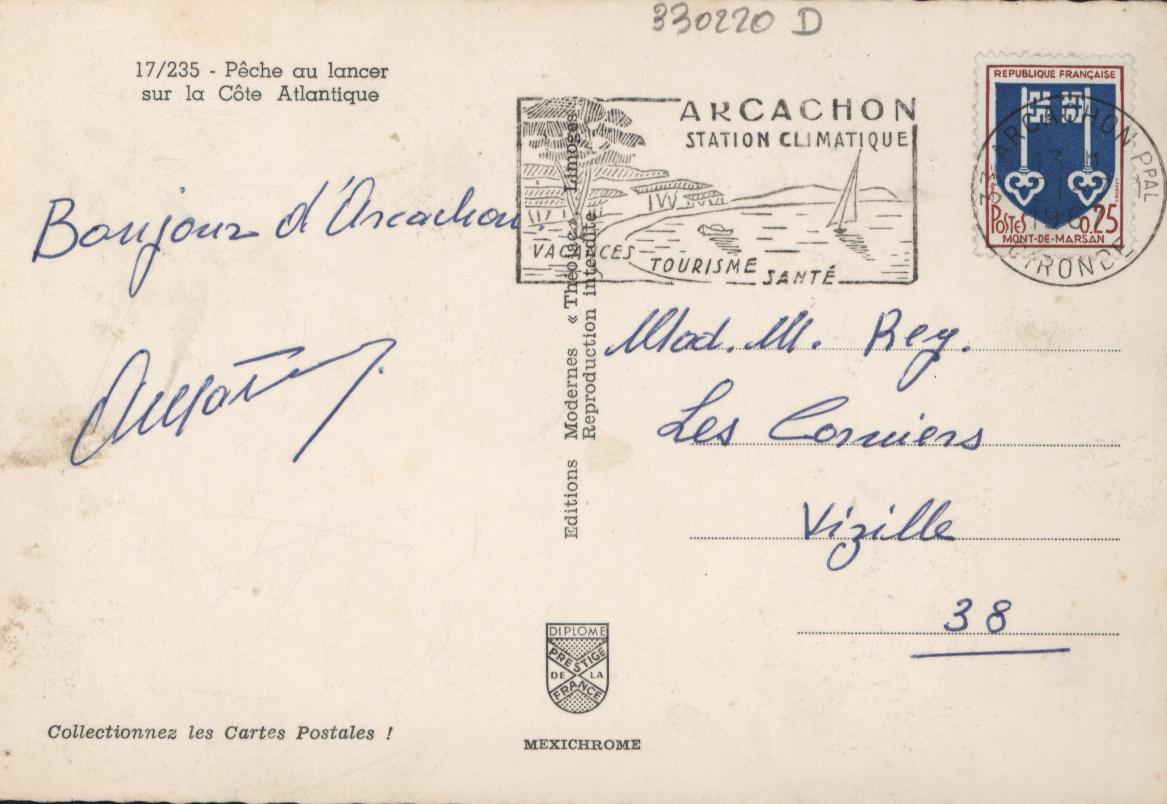 330220 D
17/235 - Pêche au lancer
sur la Côte Atlantique
ARCACHON
STATION CLIMATIQUE
VACANCES
TOURISME
SANTÉ
REPUBLIQUE FRANÇAISE
POSTES 0,25
MONT-DE-MARSAN
33 ARCACHON PPAL
GIRONDE
Bonjour d'Arcachon.
Editions Modernes « Théojac », Limoges
Reproduction interdite
Mad. M. Rey.
Les Corniers
Vizille
38
DIPLOME
PRESTIGE
DE LA
FRANCE
Collectionnez les Cartes Postales !
MEXICHROME